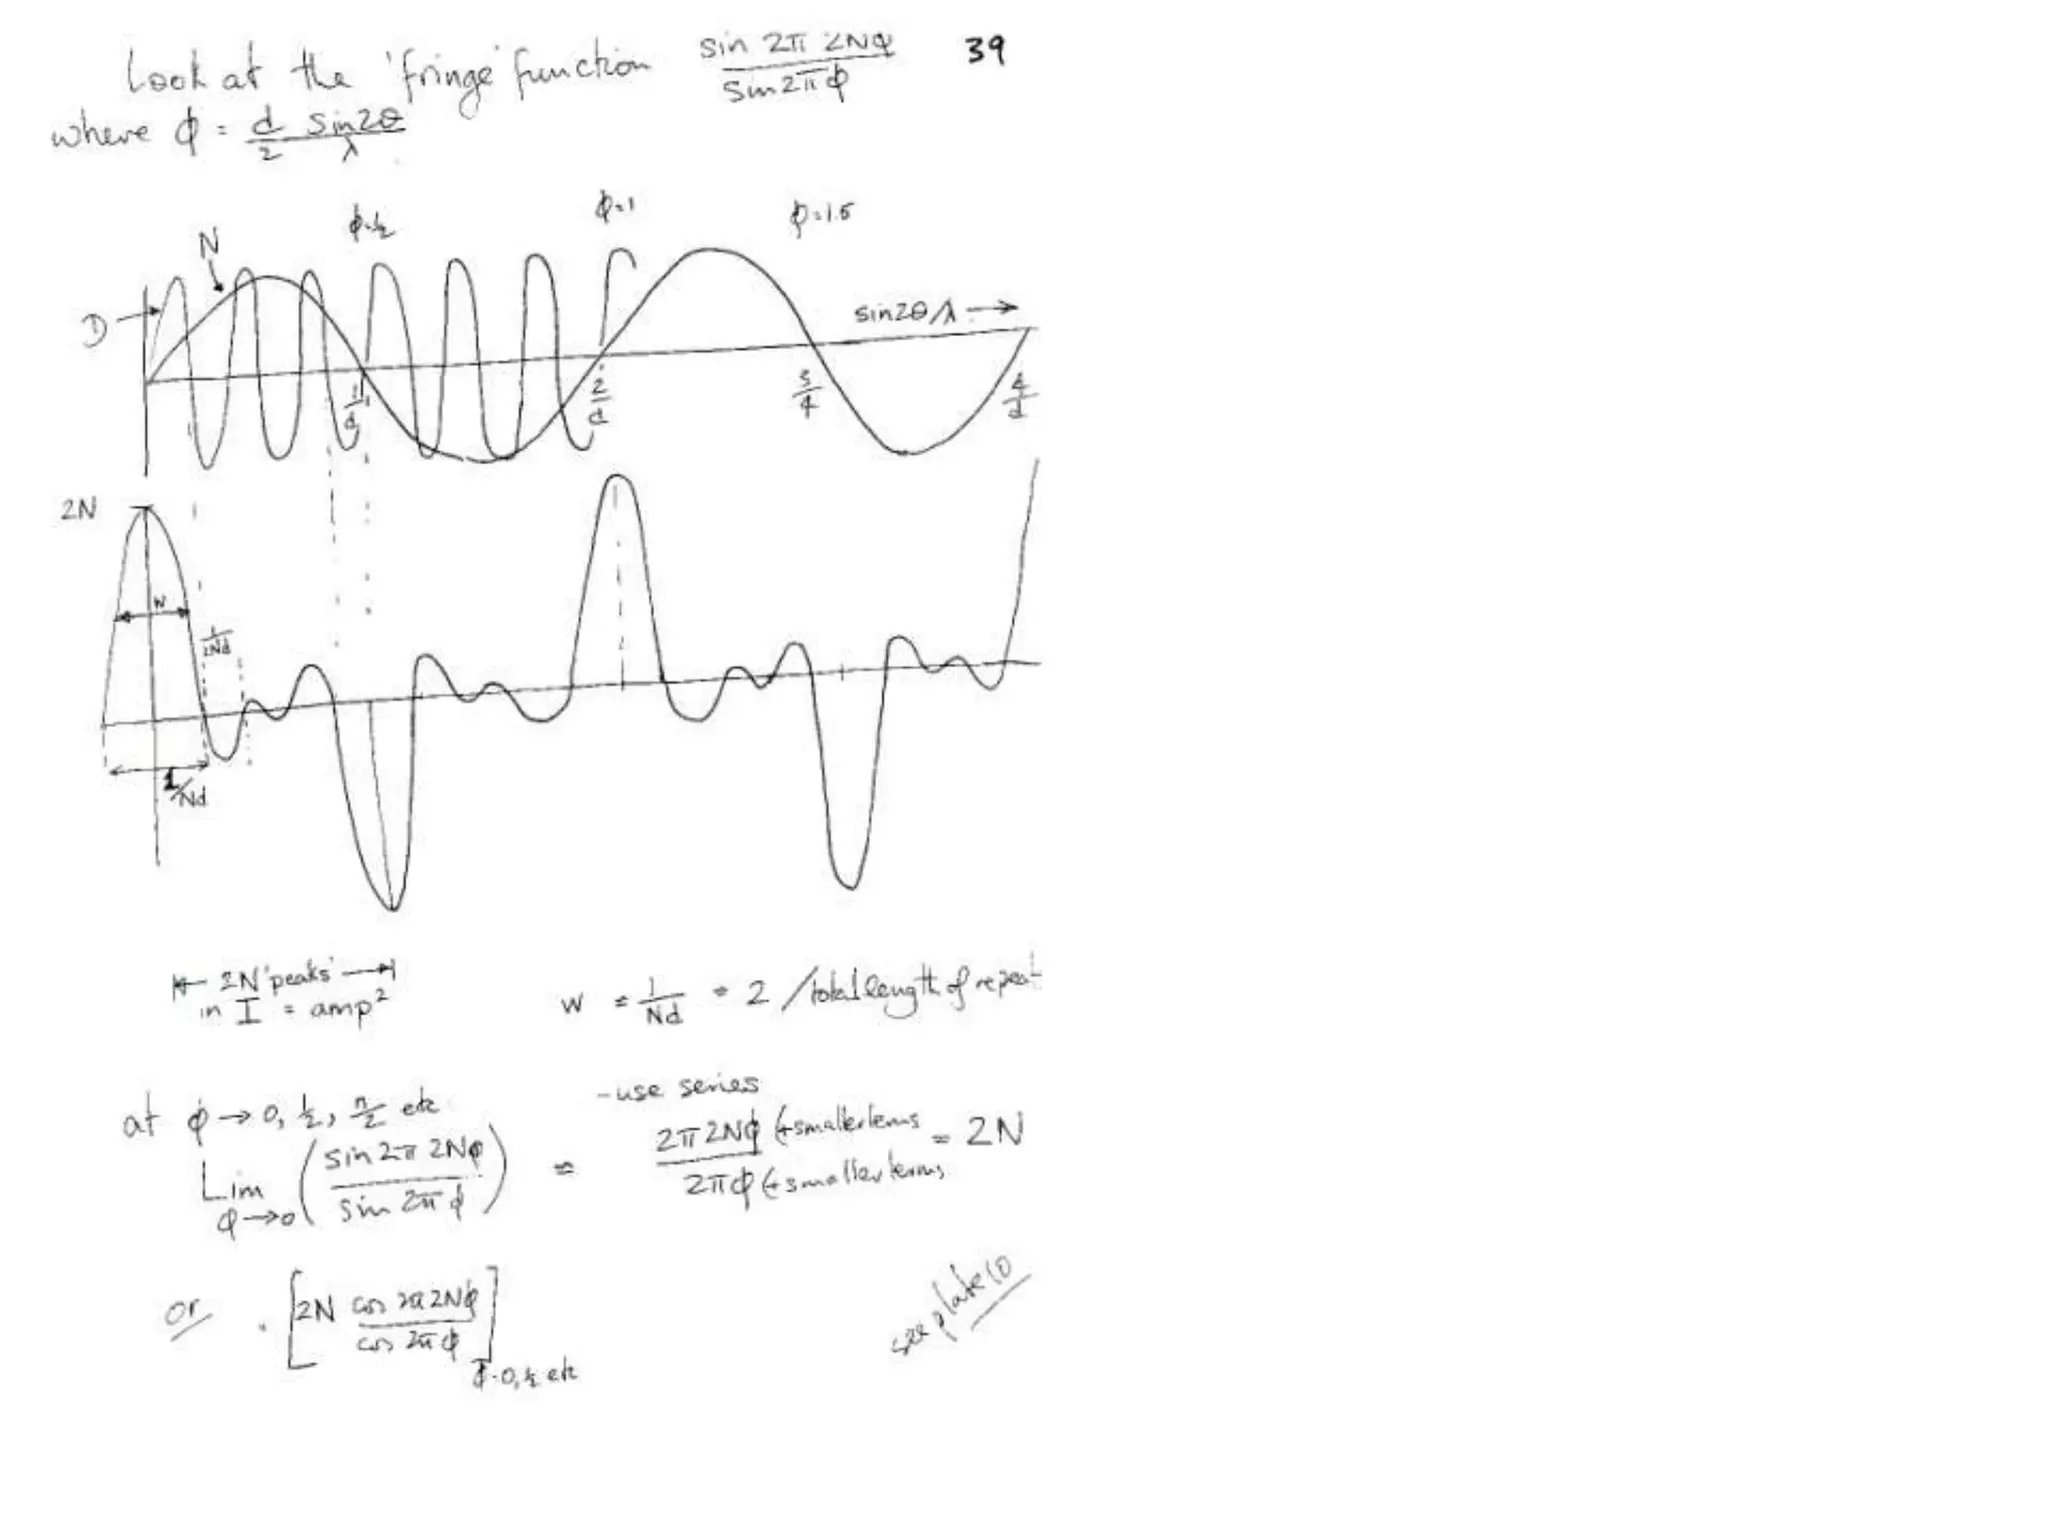 Look at the 'fringe' function sin 2π 2Nφ / sin 2π φ 39
where φ = d/2 sin2θ/λ
φ=½ φ=1 φ=1.5
N
D
sin2θ/λ →
1/d 2/d 3/4 4/d
2N
w
1/2Nd
1/Nd
2N 'peaks'
in I = amp²
w = 1/Nd = 2 / total length of repeat
- use series
at φ → 0, ½, n/2 etc
Lim φ→0 (sin 2π 2Nφ / sin 2π φ) = 2π 2Nφ (+ smaller terms / 2π φ (+ smaller terms = 2N
or [2N cos 2π 2Nφ / cos 2π φ] φ=0, ½ etc
see plate 10